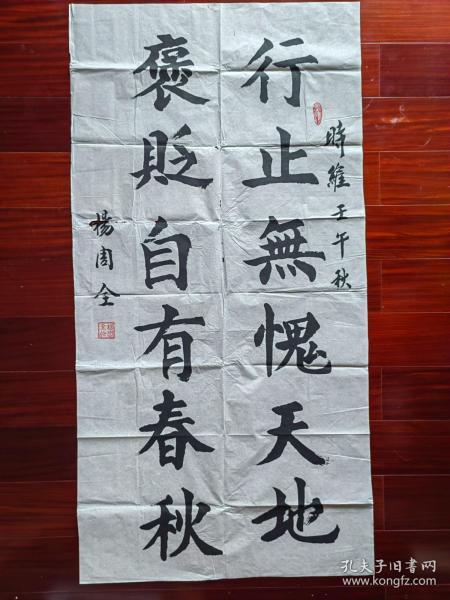 時維壬午秋
行止無愧天地
褒貶自有春秋
楊周全
孔夫子旧书网
www.kongfz.com